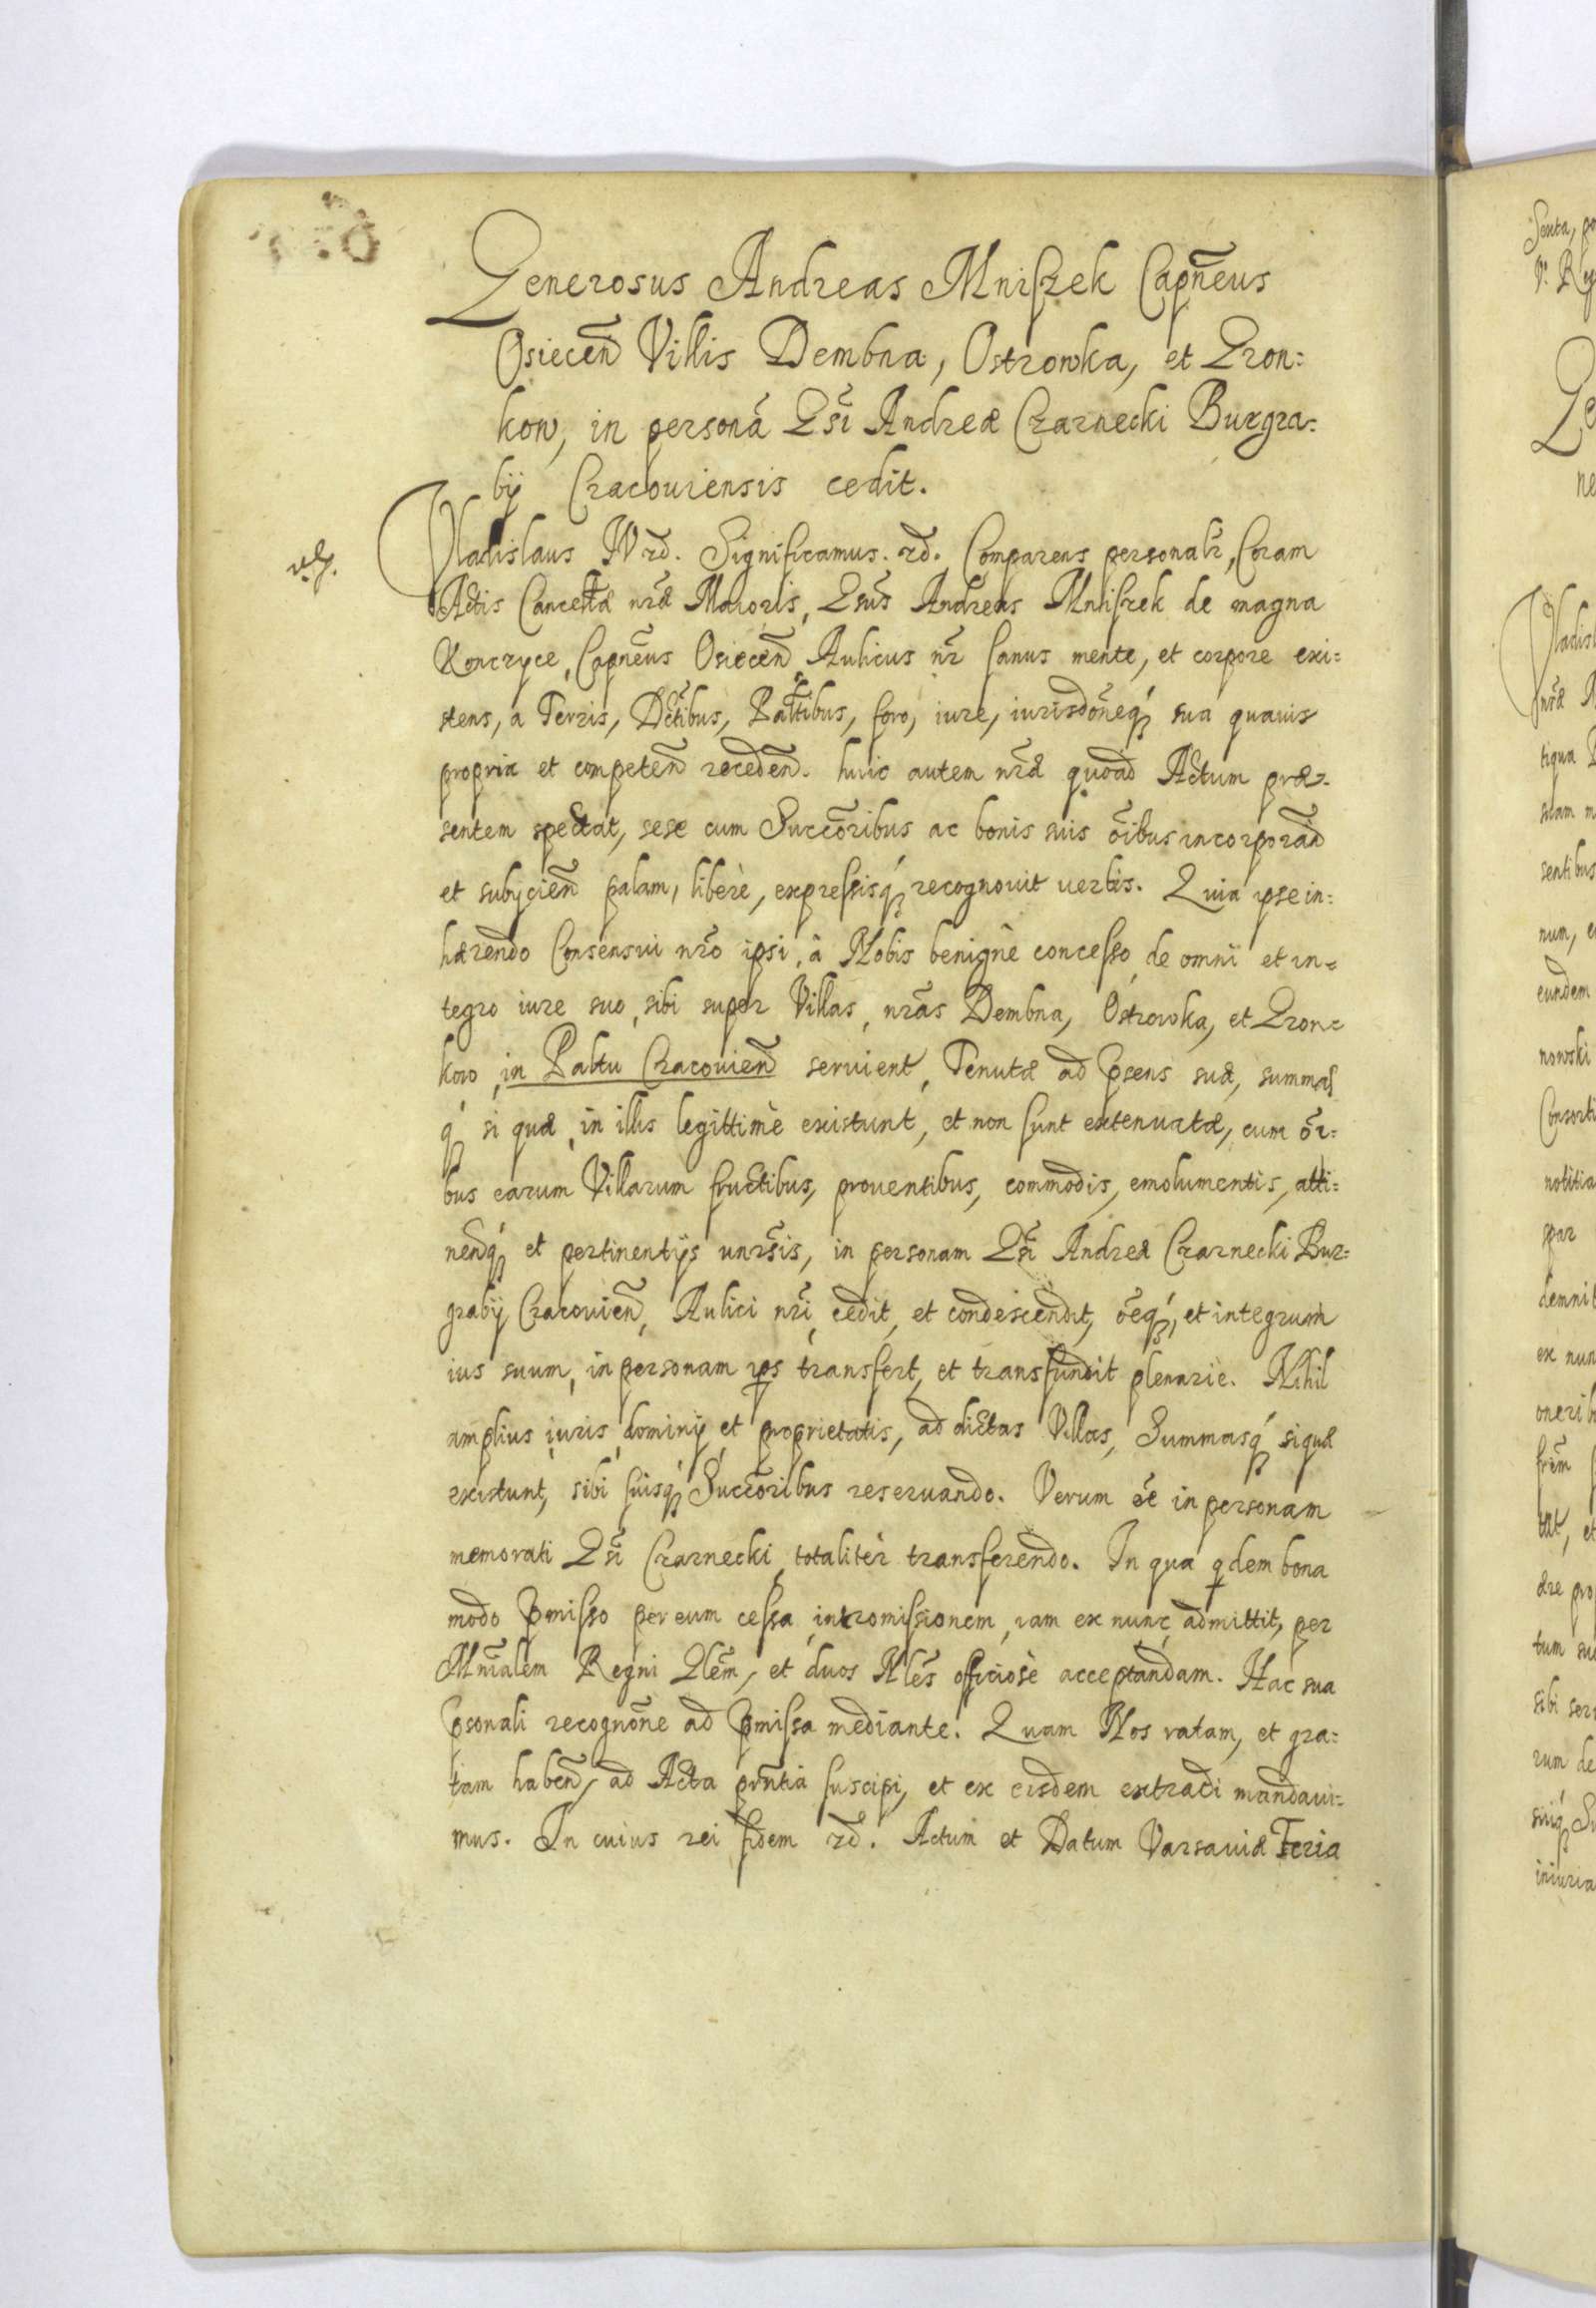 Generosus Andreas Mniszek Capn̄eus
Osiecen̄ Villis Dembna, Ostrowka, et Gron=
kow, in personā Gs̄i Andreæ Czarnecki Burgra=
bÿ Cracouiensis cedit.
Vladislaus IV rd̄. Significamus. rd̄. Comparens personalr̄, Coram
Actis Cancellæ nr̄æ Maioris, Gsus̄ Andreas Mniszek de magna
Konczyce, Capn̄eus Osiecen̄, Aulicus nr̄ sanus mente, et corpore exi=
stens, a Terris, Dctībus, Palītibus, foro, iure, iurisdōneq́ sua quauis
propria et competen̄ receden̄. huic autem nr̄æ quoad Actum præ=
sentem spectat, sese cum Succōribus ac bonis suis ōibus incorporan̄
et subÿcien̄ palam, liberè, expressisq́ recognouit uerbis. Quia ipse in=
hærendo Consensui nrō ipsi, à Nobis benignè concesso, de omni et in=
tegro iure suo, sibi super Villas, nrās Dembna, Ostrowka, et Gron=
kow, in Paltu Cracouien̄ seruient, Tenutæ ad p̄sens suæ, summas
q́ si quæ, in illis legittimè existunt, et non sunt extenuatæ, cum ōi=
bus earum Villarum fructibus, prouentibus, commodis, emolumentis, atti=
nen̄q́ et pertinentÿs unrs̄is, in personam Gs̄i Andreæ Czarnecki Bur=
grabÿ Cracouien̄, Aulici nrī, cedit, et condescendit, ōeq́, et integrum
ius suum, in personam ip̄s transfert, et transfundit plenarie. Nihil
amplius iuris, dominÿ et proprietatis, ad dictas Villas, Summasq́ siquæ
existunt, sibi suisq́ Succōribus reseruando. Verum ōe in personam
memorati Gs̄i Czarnecki, totalitèr transferendo. In qua qdem bona
modo p̄misso per eum cessa, intromissionem, iam ex nunc, admittit, per
Mnīalem Regni Glēm, et duos Nlēs officiosè acceptandam. Hac sua
p̄sonali recognōne ad p̄missa mediante. Quam Nos ratam, et gra=
tam haben̄, ad Acta prn̄tia suscipi, et ex eisdem extradi mandaui=
mus. In cuius rei fidem rd̄. Actum et Datum Varsauiæ Feria